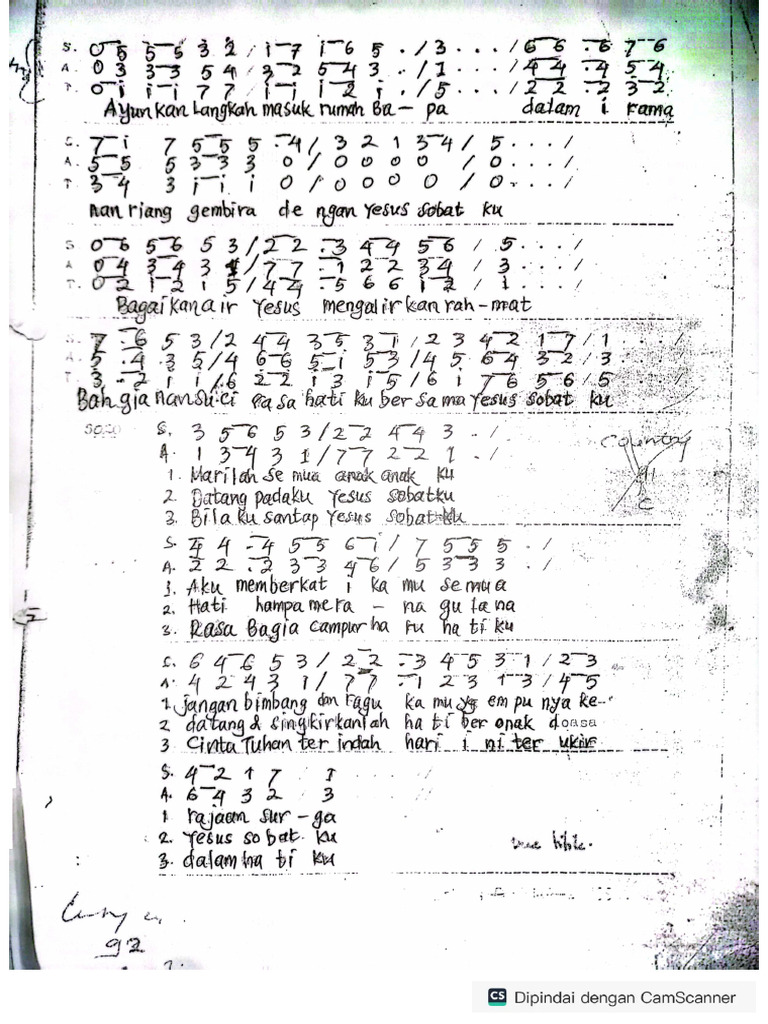 S. 0 5 5 5 3 2 / 1 7 1 6 5 . / 3 . . . / 6 6 . 6 7 6
A. 0 3 3 3 5 4 / 3 2 5 4 3 . / 1 . . . / 4 4 . 4 5 4
T. 0 1 1 1 7 7 / 1 1 1 2 1 . / 5 . . . / 2 2 . 2 3 2
Ayunkan Langkah masuk rumah Ba - pa dalam i rama
S. 7 1 7 5 5 5 . 4 / 3 2 1 3 4 / 5 . . . /
A. 5 5 5 3 3 3 0 / 0 0 0 0 / 0 . . . /
T. 3 4 3 1 1 1 0 / 0 0 0 0 / 0 . . . /
nan riang gembira de ngan Yesus sobat ku
S 0 6 5 6 5 3 / 2 2 . 3 4 4 5 6 / 5 . . . /
A 0 4 3 4 3 1 / 7 7 . 1 2 2 3 4 / 3 . . . /
T. 0 2 1 2 1 5 / 4 4 . 5 6 6 1 2 / 1 . . . /
Bagaikan air Yesus mengalirkan rah-mat
S. 7 . 6 5 3 / 2 4 4 3 5 3 1 / 2 3 4 2 1 7 / 1 . . . /
A. 5 . 4 3 5 / 4 6 6 5 1 5 3 / 4 5 6 4 3 2 / 3 . . . /
T. 3 . 2 1 1 / 6 2 2 1 3 1 5 / 6 1 7 6 5 6 / 5 . . . /
Bah gia nan su ci rasa hati ku ber sama Yesus sobat ku
SOLO S. 3 5 6 5 3 / 2 2 4 4 3 . /
A. 1 3 4 3 1 / 7 7 2 2 1 . /
Country
C
1. Marilah se mua anak anak ku
2. Datang padaku Yesus sobatku
3. Bila ku santap Yesus sobat ku
S. 4 4 . 4 5 5 6 1 / 7 5 5 5 . /
A. 2 2 . 2 3 3 4 6 / 5 3 3 3 . /
1. Aku memberkat i ka mu semua
2. Hati hampa mera - na gu lana
3. Rasa Bagia campur ha ru ha ti ku
S. 6 4 6 5 3 / 2 2 . 3 4 5 3 1 / 2 3
A. 4 2 4 3 1 / 7 7 . 1 2 3 1 3 / 4 5
1. jangan bimbang dan ragu ka mu yg em pu nya ke-
2 datang & singkirkanlah ha ti ber onak doasa
3 Cinta Tuhan ter indah hari i ni ter ukir
S. 4 2 1 7 1
A. 6 4 3 2 3
1 rajaan sur - ga
2. Yesus sobat ku
3. dalam ha ti ku
92
CS Dipindai dengan CamScanner